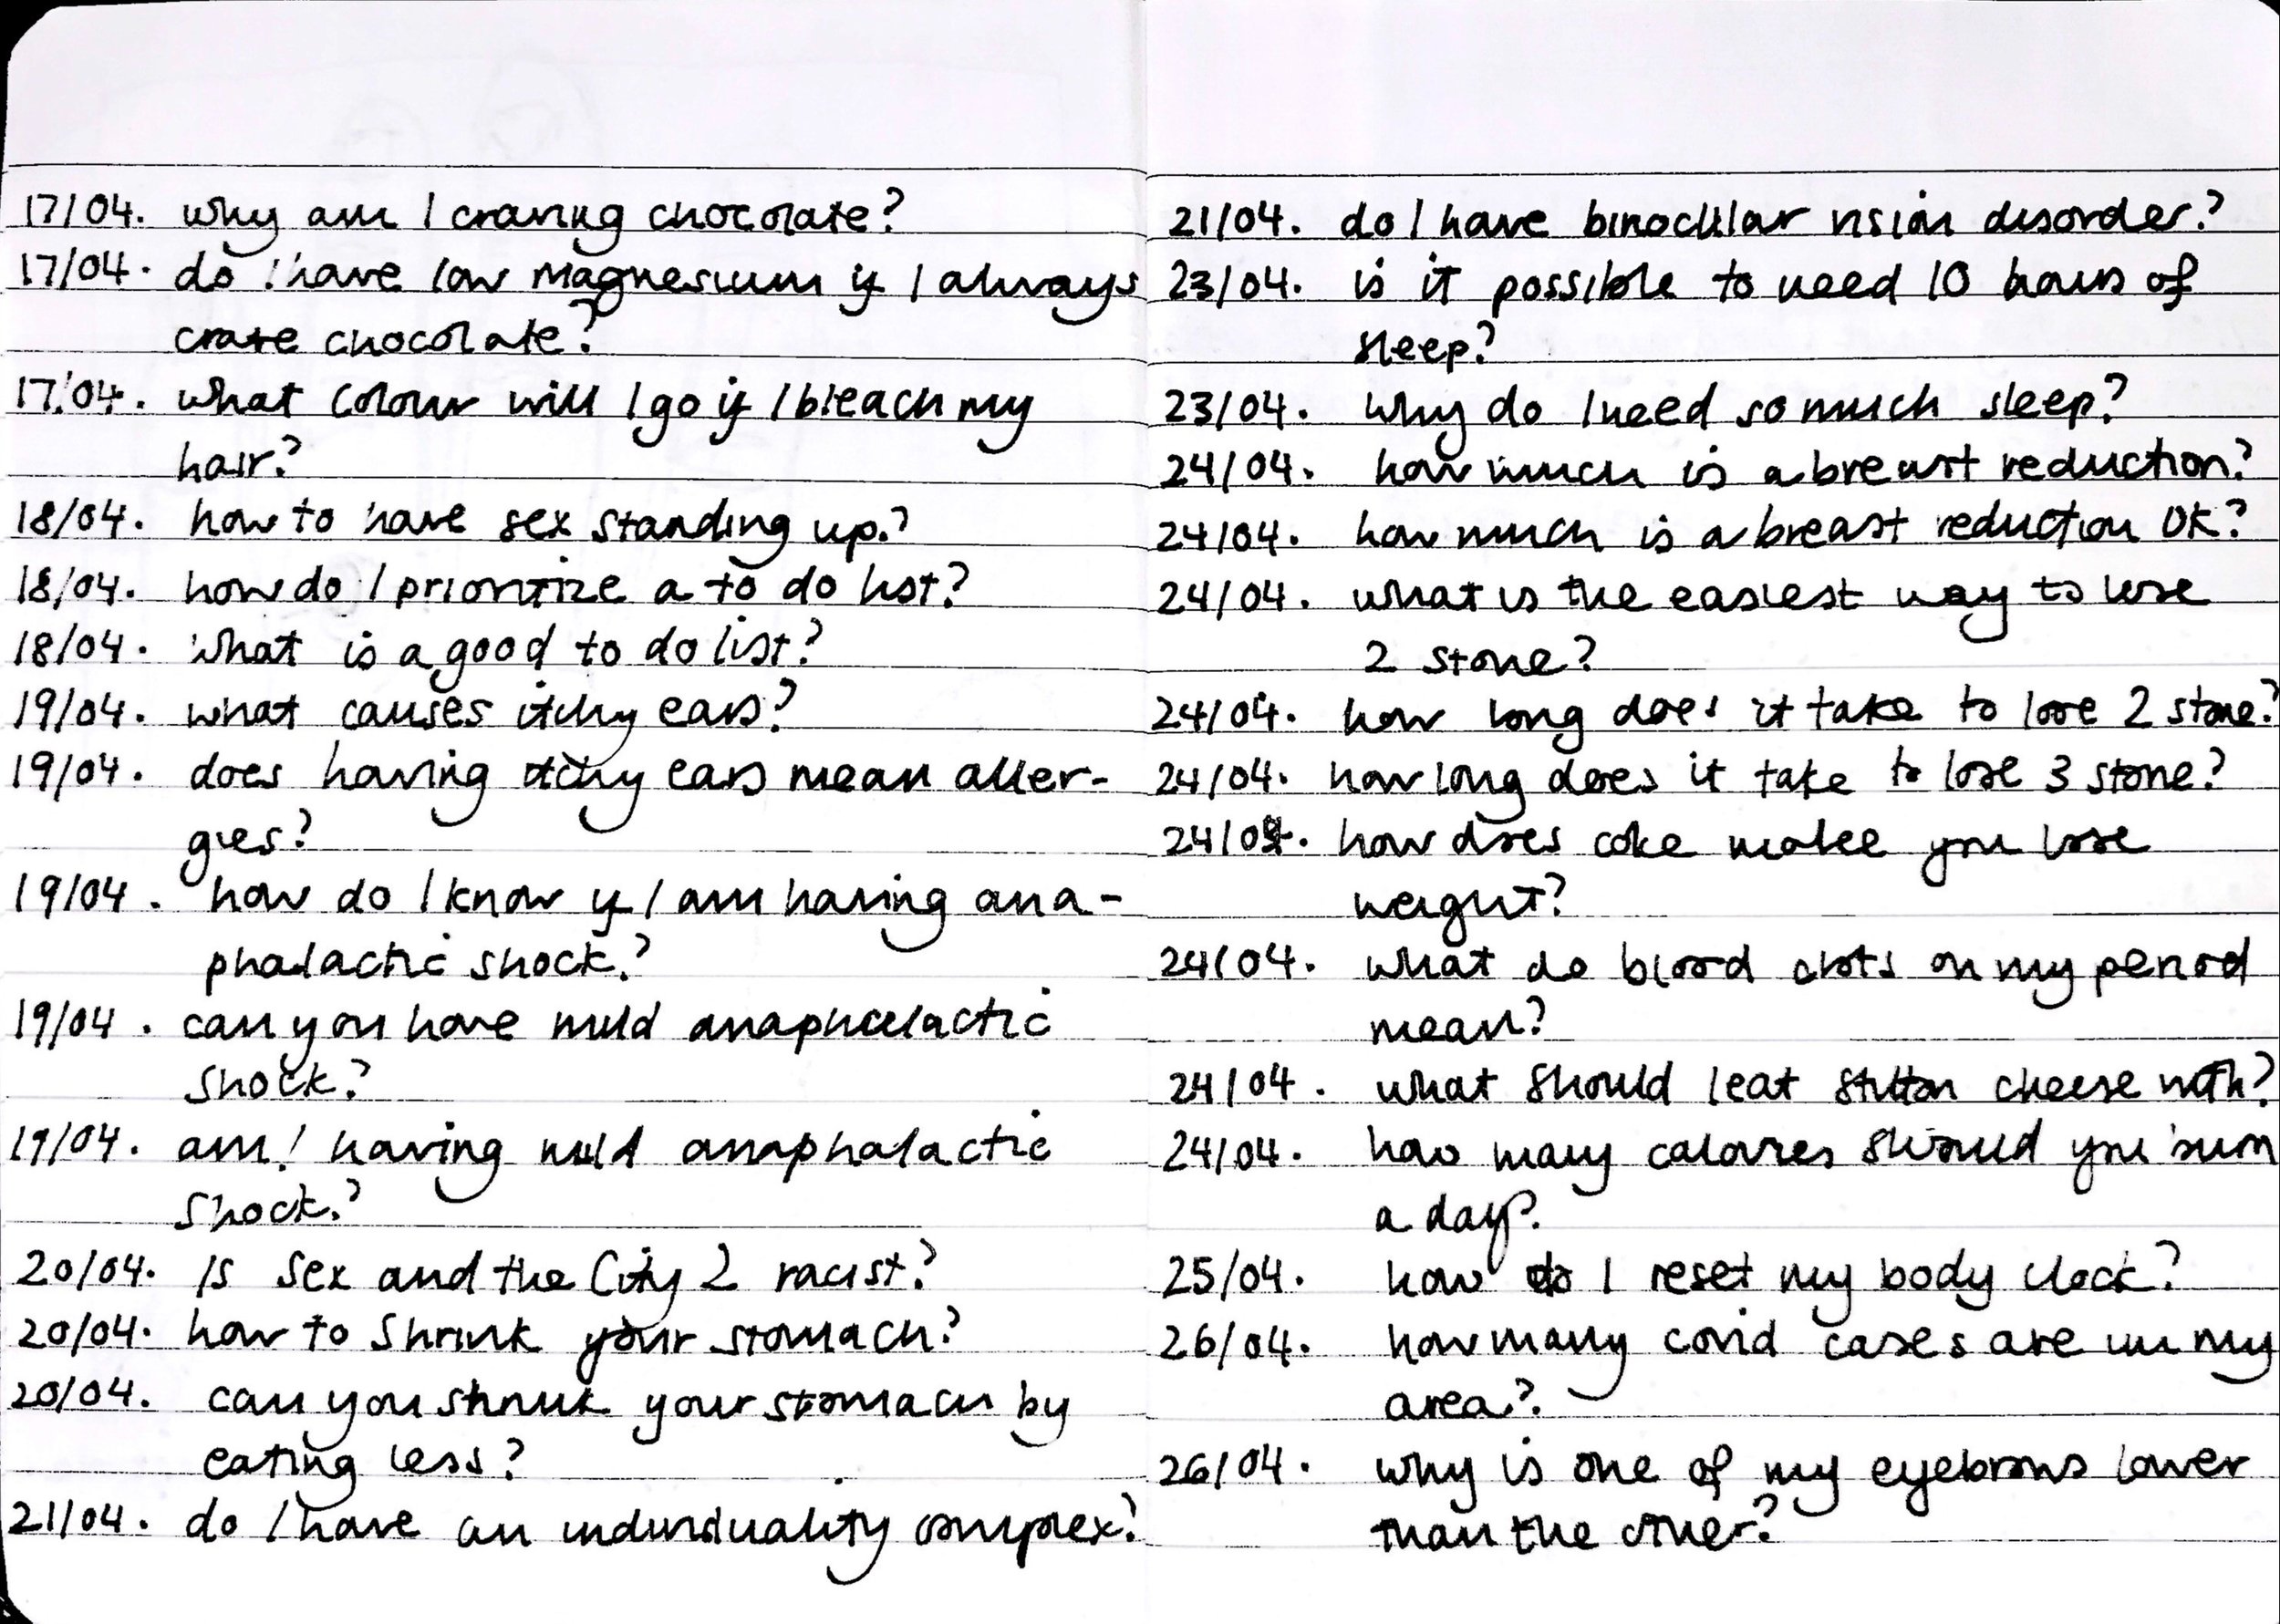 17/04. why am I craving chocolate?
17/04. do I have low magnesium if I always
crave chocolate?
17/04. what colour will I go if I bleach my
hair?
18/04. how to have sex standing up?
18/04. how do I prioritize a to do list?
18/04. what is a good to do list?
19/04. what causes itchy ears?
19/04. does having itchy ears mean aller-
gies?
19/04. how do I know if I am having ana-
phalactic shock?
19/04. can you have mild anaphalactic
shock?
19/04. am I having mild anaphalactic
shock?
20/04. Is Sex and the City 2 racist?
20/04. how to shrink your stomach?
20/04. can you shrink your stomach by
eating less?
21/04. do I have an individuality complex?
21/04. do I have binocular vision disorder?
23/04. is it possible to need 10 hours of
sleep?
23/04. why do I need so much sleep?
24/04. how much is a breast reduction?
24/04. how much is a breast reduction UK?
24/04. what is the easiest way to lose
2 stone?
24/04. how long does it take to lose 2 stone?
24/04. how long does it take to lose 3 stone?
24/04. how does coke make you lose
weight?
24/04. what do blood clots on my period
mean?
24/04. what should I eat stilton cheese with?
24/04. how many calories should you burn
a day?
25/04. how do I reset my body clock?
26/04. how many covid cases are in my
area?
26/04. why is one of my eyebrows lower
than the other?